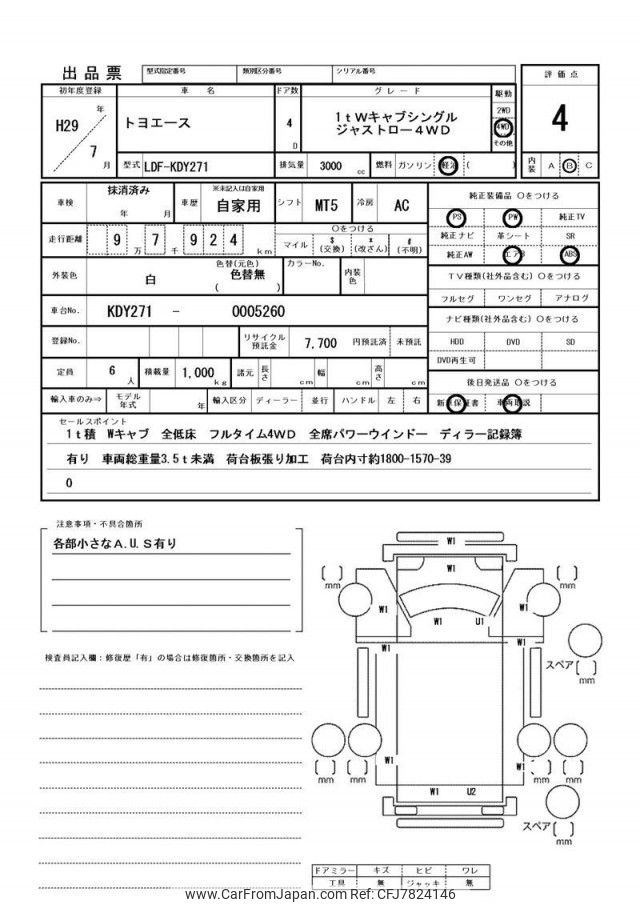 出品票 型式指定番号 類別区分番号 シリアル番号
初年度登録 車 名 ドア数 グレード 駆動 評価点
H29 年 7 月 トヨエース 4 D 1tWキャブシングル ジャストロー4WD 2WD 4WD その他 4
型式 LDF-KDY271 排気量 3000 cc 燃料 ガソリン 軽油 ( ) 内装 A B C
車検 抹消済み 年 月 車歴 ※未記入は自家用 自家用 シフト MT5 冷房 AC 純正装備品 Oをつける
PS PW 純正TV
走行距離 9 万 7 千 9 2 4 km Oをつける マイル $ (交換) * (改ざん) # (不明) 純正ナビ 革シート SR
純正AW エアB ABS
外装色 白 色替(元色) 色替無 ( ) カラーNo. 内装色 TV種類(社外品含む) Oをつける
フルセグ ワンセグ アナログ
車台No. KDY271 - 0005260 ナビ種類(社外品含む) Oをつける
登録No. リサイクル預託金 7,700 円預託済 未預託 HDD DVD SD
DVD再生可
定員 6 人 積載量 1,000 kg 諸元 長さ cm 幅 cm 高さ cm 後日発送品 Oをつける
輸入車のみ⇒ モデル年式 年 輸入区分 ディーラー 並行 ハンドル 左 右 新車保証書 車両取説
セールスポイント
1t積 Wキャブ 全低床 フルタイム4WD 全席パワーウインドー ディラー記録簿
有り 車両総重量3.5t未満 荷台板張り加工 荷台内寸約1800-1570-39
0
注意事項・不具合箇所
各部小さなA.U.S有り
検査員記入欄：修復歴「有」の場合は修復箇所・交換箇所を記入
W1
W1
[ ] mm [ ] mm
W1 W1
W1 U1
W1 W1
スペア [ ] mm
W1 W1
[ ] mm [ ] mm [ ] mm [ ] mm
W1 U2
スペア [ ] mm
ドアミラー キズ ヒビ ワレ
工具 無 ジャッキ 無
www.CarFromJapan.com Ref-CFJ7824146